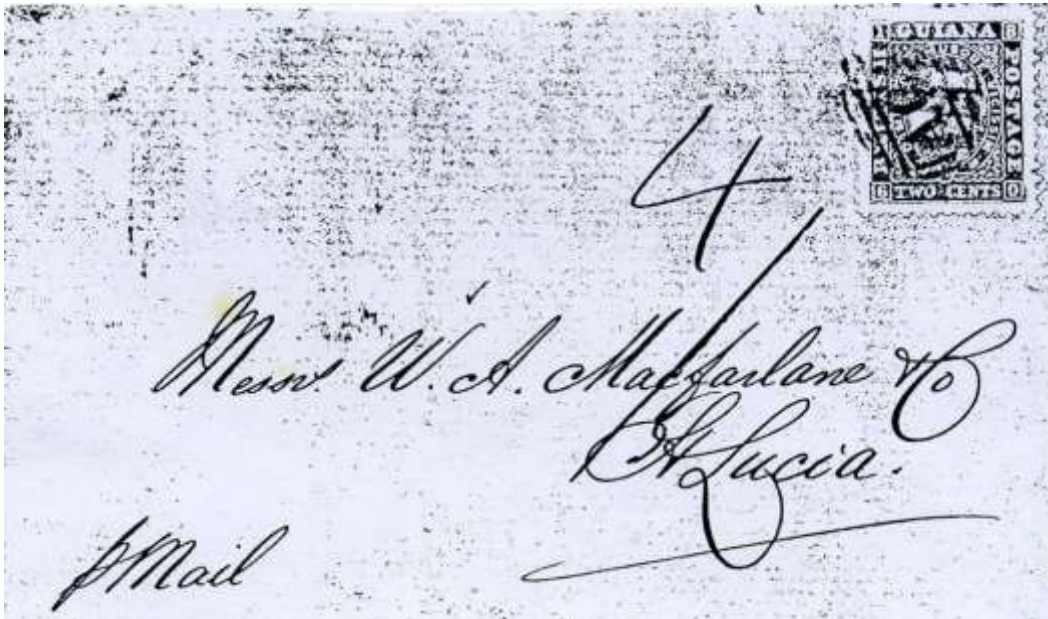 GUIANA
POSTAGE
TWO CENTS
4
Messrs. W. A. Macfarlane & Co
St Lucia.
p Mail